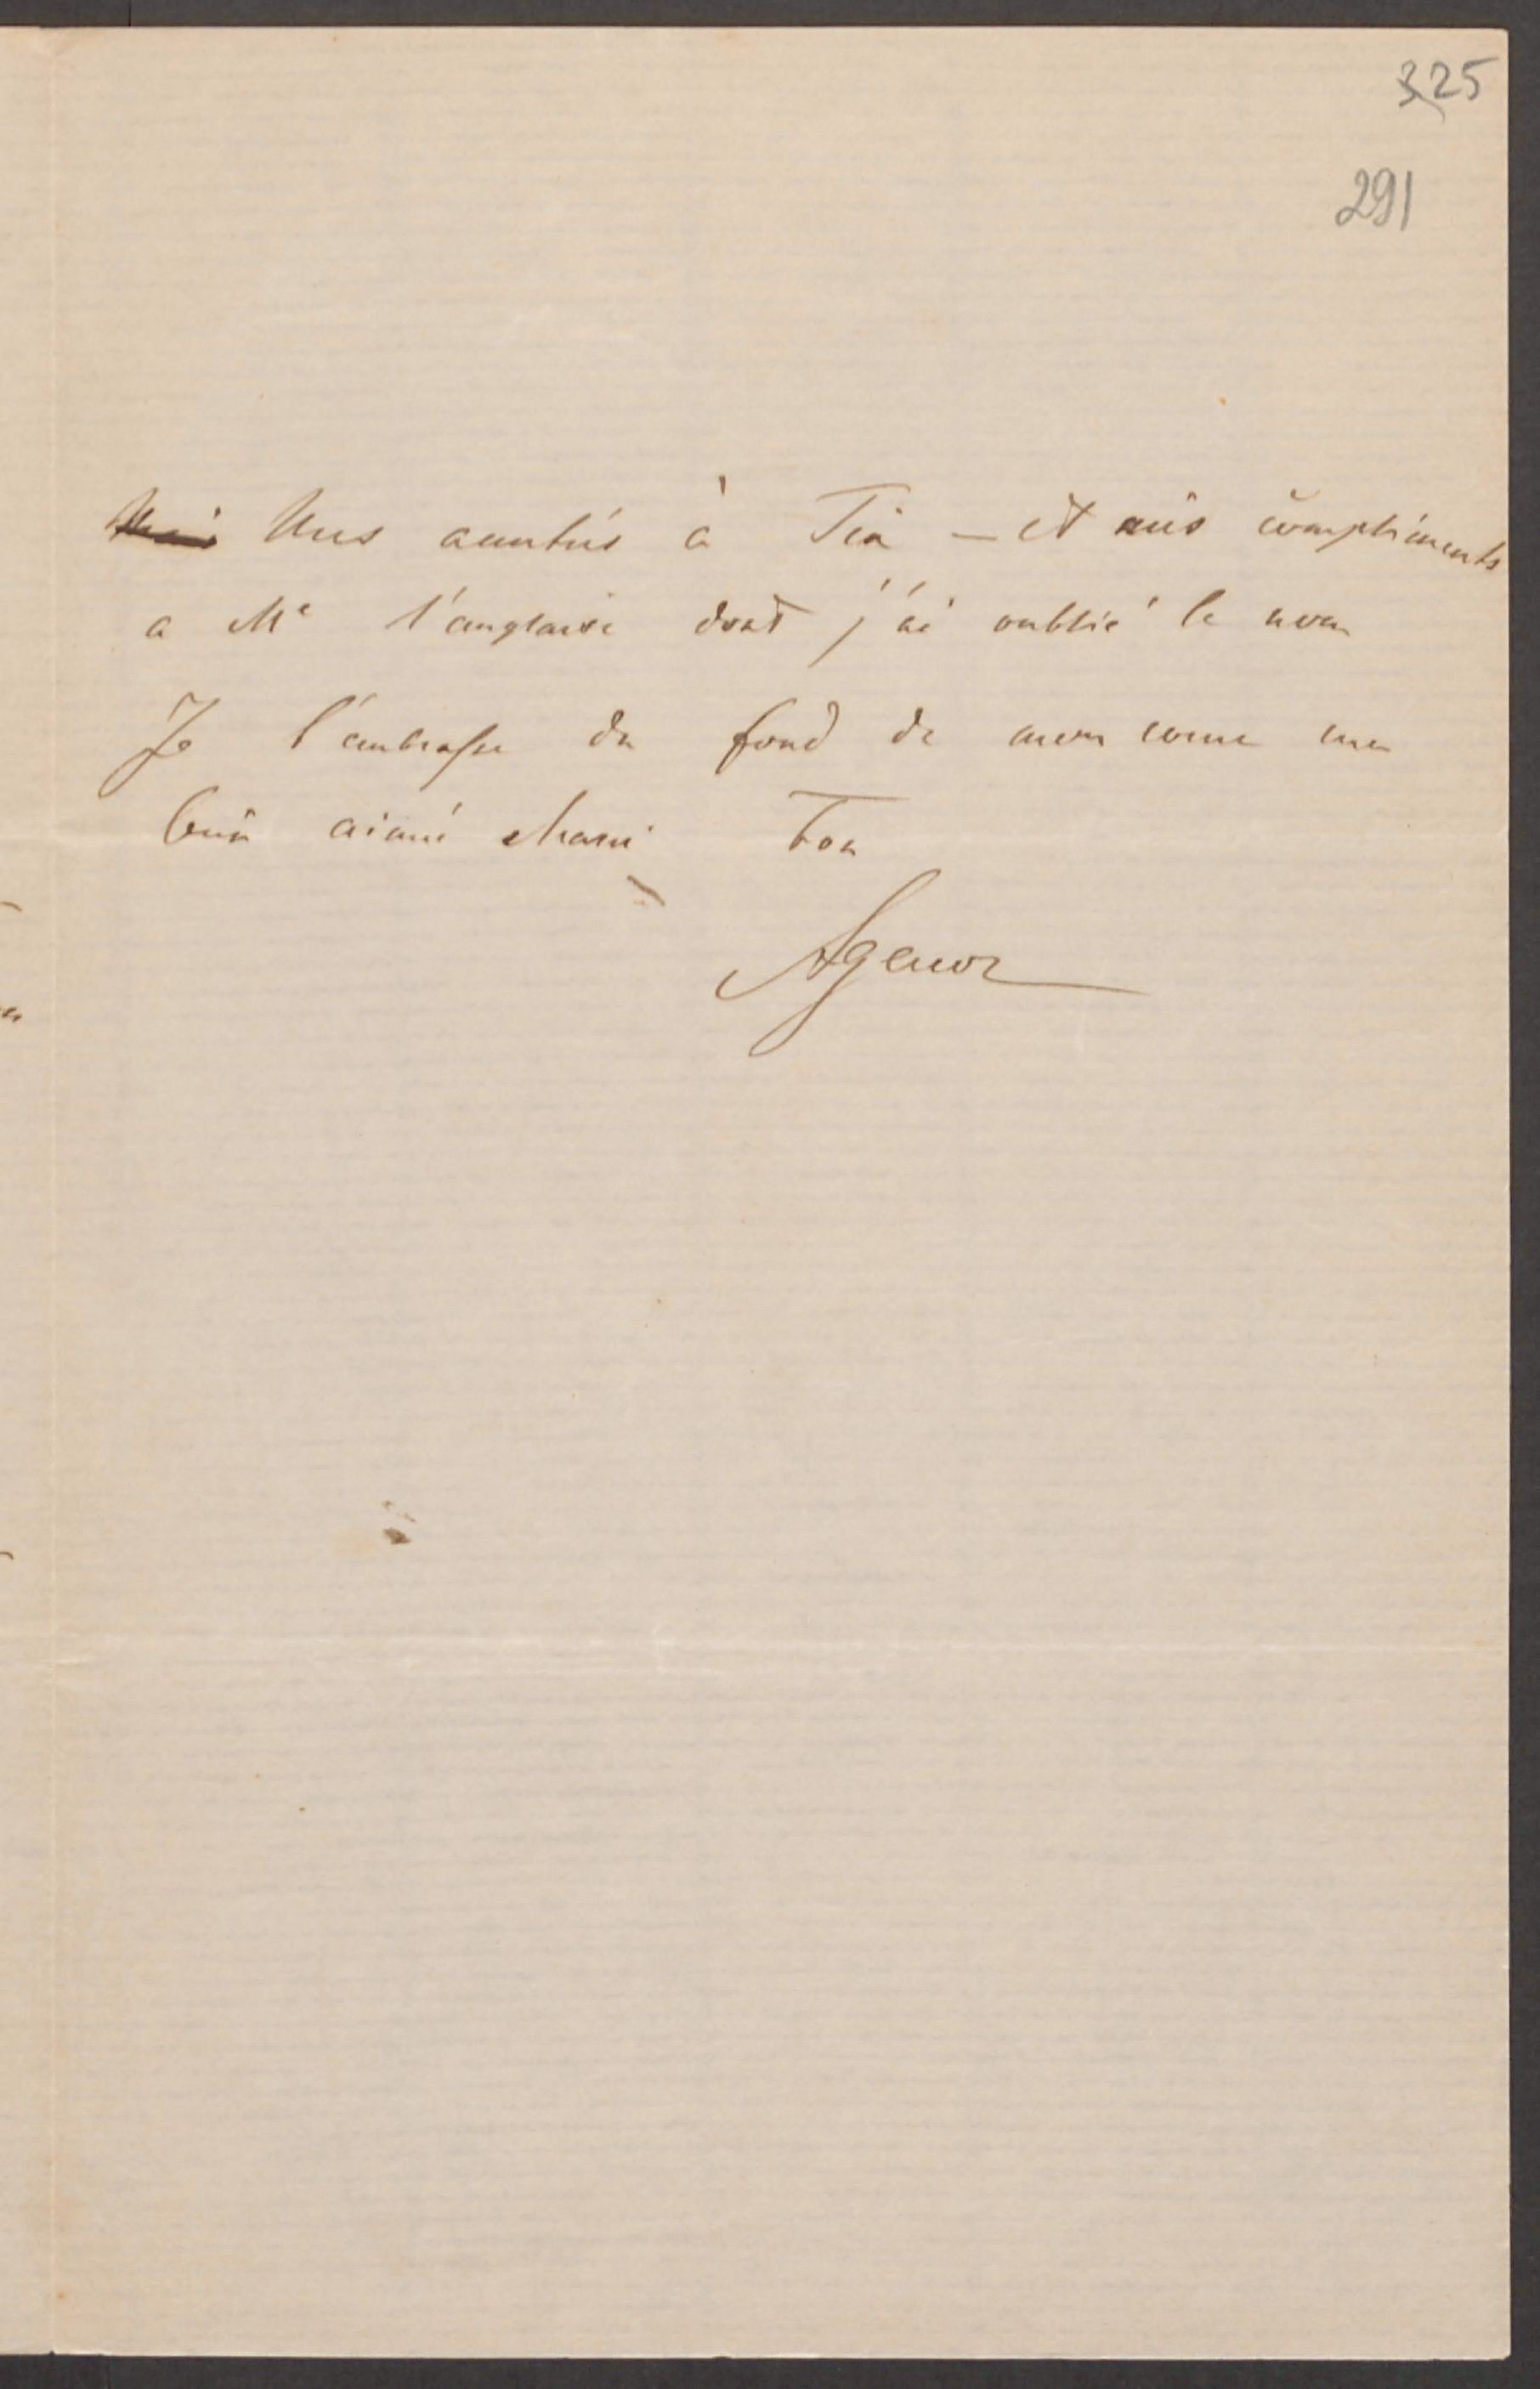 325
291
Mes amitiés à Tia — et mes compliments
a Me l'anglaise dont j'ai oublié le nom
Je t'embrasse du fond de mon coeur mon
bien aimé Ton
Agenor